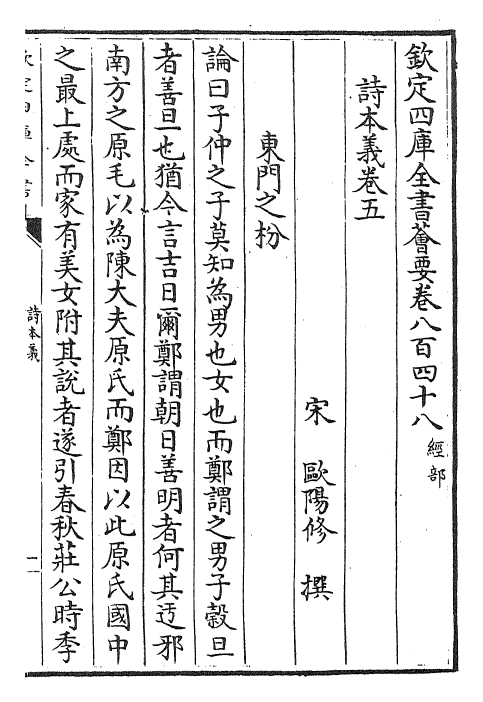 欽定四庫全書薈要卷八百四十八 經部
詩本義卷五
宋 歐陽修 撰
東門之枌
論曰子仲之子莫知為男也女也而鄭謂之男子榖旦
者善旦也猶今言吉日爾鄭謂朝日善明者何其迃邪
南方之原毛以為陳大夫原氏而鄭因以此原氏國中
之最上處而家有美女附其說者遂引春秋莊公時季
詩本義
一